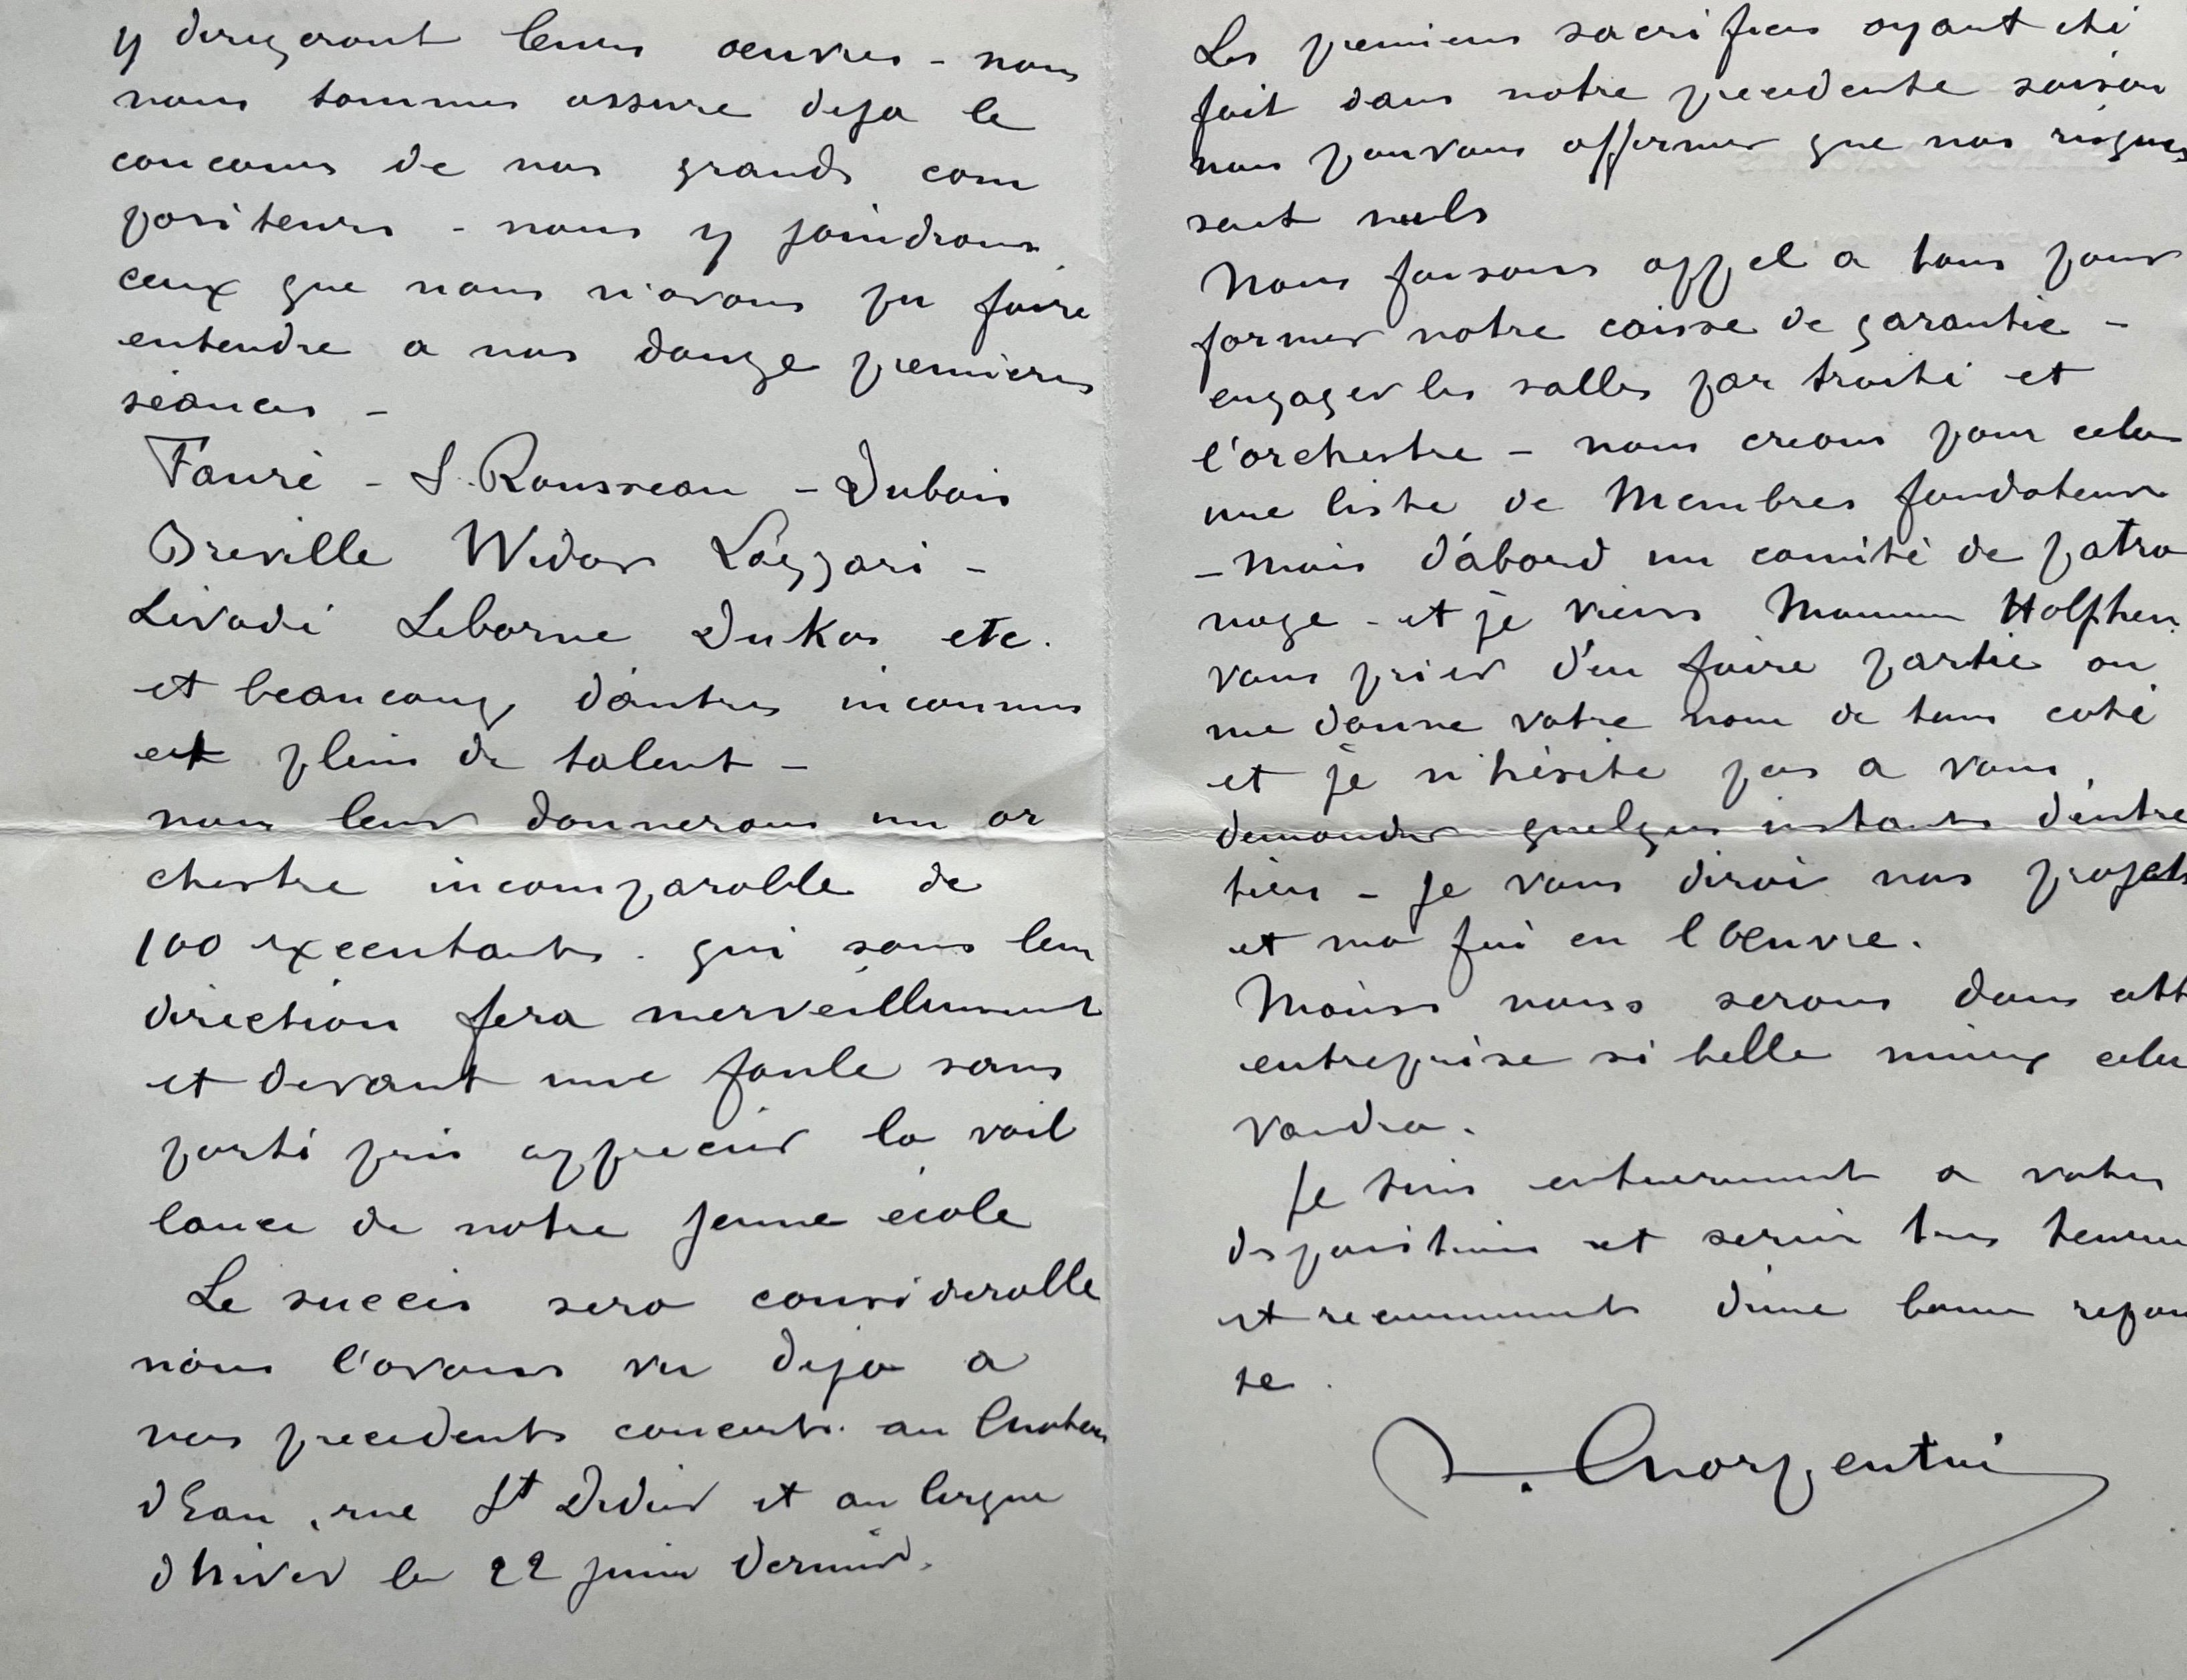 y dirigeront leurs oeuvres - nous
nous sommes assure deja le
concours de nos grands com
positeurs - nous y joindrons
ceux que nous n'avons pu faire
entendre a nos douze premieres
séances -
Fauré - S. Rousseau - Dubois
Breville Widor Lazzari -
Levadé Leborne Dukas etc.
et beaucoup d'autres inconnus
et plein de talent -
nous leur donnerons un or
chestre incomparable de
100 executants. qui sous leur
direction fera merveilleusement
et devant une foule sans
parti pris apprecier la vail
lance de notre jeune école
Le succès sera considerable
nous l'avons vu deja a
nos precedents concerts. au Chateau
d'Eau, rue St Didier et au Cirque
d'hiver le 22 juin dernier.
Les premiers sacrifices ayant été
fait dans notre precedente saison
nous pouvons affirmer que nos risques
sont nuls
Nous faisons appel a tous pour
former notre caisse de garantie -
engager les salles par traité et
l'orchestre - nous creons pour cela
une liste de Membres fondateurs
- mais d'abord un comité de patro
nage - et je viens Monsieur Holfhen
vous prier d'en faire partie on
me donne votre nom de tous coté
et je n'hésite pas a vous
demander quelques instants d'entre
tien - je vous dirai nos projets
et ma foi en l'Oeuvre.
Moins nous serons dans cette
entreprise si belle mieux cela
vaudra.
Je suis entierement a votre
disposition et serais tres heureux
et reconnaissants d'une bonne repon
se.
Charpentier